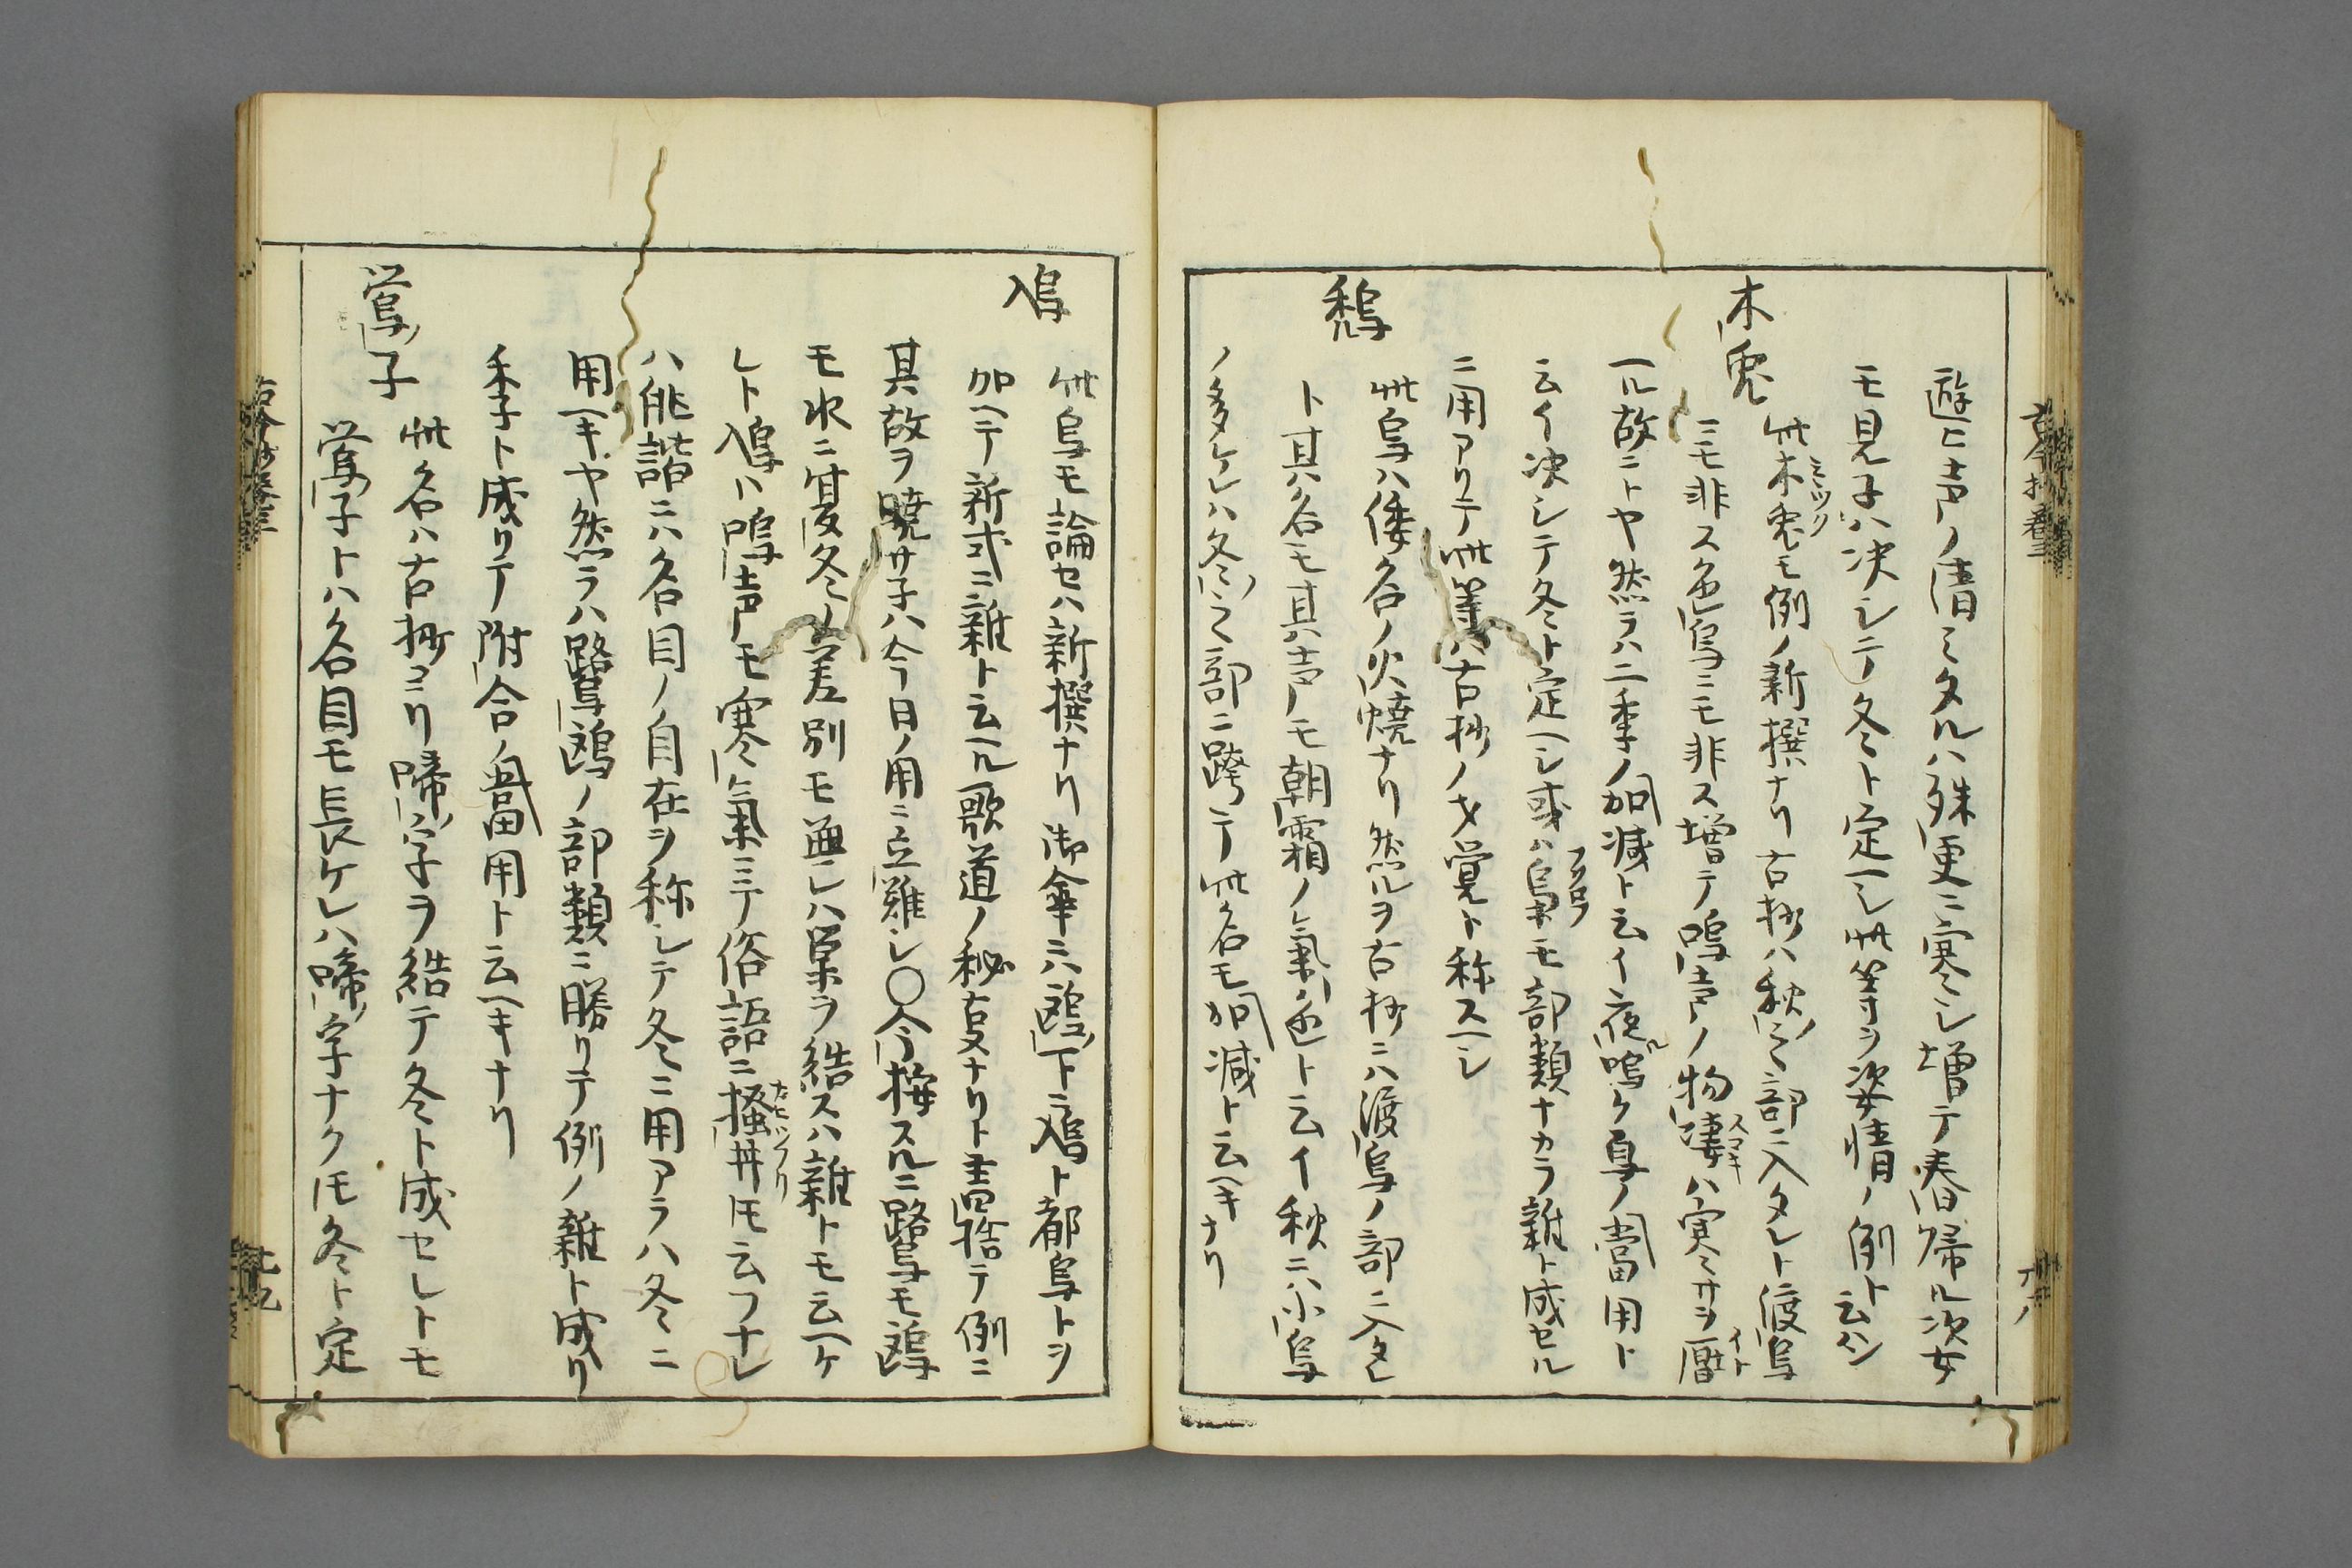 遊ヒ声ノ清ミタルハ殊更ニ寒シ増テ春帰ル次女
モ見子ハ决シテ冬ト定ヘシ此等ヲ姿情ノ例ト云ハン
木兎
此木兎モ例ノ新撰ナリ古抄ハ秋ノ部ニ入タレト渡鳥
ミツク
ニモ非ス色鳥ニモ非ス増テ鳴声ノ物凄ハ寒サヲ厭
スコキ
イト
ヘル故ニトヤ然ラハ二季ノ加减ト云イ夜ル鳴ク鳥ノ當用ト
云イ决シテ冬ト定ヘシ或ハ梟モ部類ナカラ雜ト成セル
フクロフ
ニ用アリテ此等ハ古抄ノ才覚ト称スヘシ
鶖
此鳥ハ倭名ノ火焼ナリ然ルヲ古抄ニハ渡鳥ノ部ニ入タレ
ト其名モ其声モ朝霜ノ氣色ト云イ秋ニハ小鳥
ノ多ケレハ冬ノ部ニ跨テ此名モ加减ト云ヘキナリ
鳰
此鳥モ論セハ新撰ナリ御傘ニハ鴎ノ下ニ鳰ト都鳥トヲ
加ヘテ新式ニ雜ト云ヘル歌道ノ秘叓ナリト書捨テ例ニ
其故ヲ暁サ子ハ今日ノ用ニ立難シ〇今ノ按スルニ鷺モ鴎
モ水ニ夏冬ノ差別モ無レハ巣ヲ結スハ雜トモ云ヘケ
レト鳰ハ鳴声モ寒氣ニテ俗語ニ掻丼トモ云フナレ
カヒツフリ
ハ俳諧ニハ名目ノ自在ヲ称シテ冬ニ用アラハ冬ニ
用ヘキヤ然ラハ鷺鴎ノ部類ニ勝リテ例ノ雜ト成リ
季ト成リテ附合ノ當用ト云ヘキナリ
鶯子
此名ハ古抄ヨリ啼ノ字ヲ結テ冬ト成セレトモ
鶯子トハ名目モ長ケレハ啼ノ字ナクトモ冬ト定